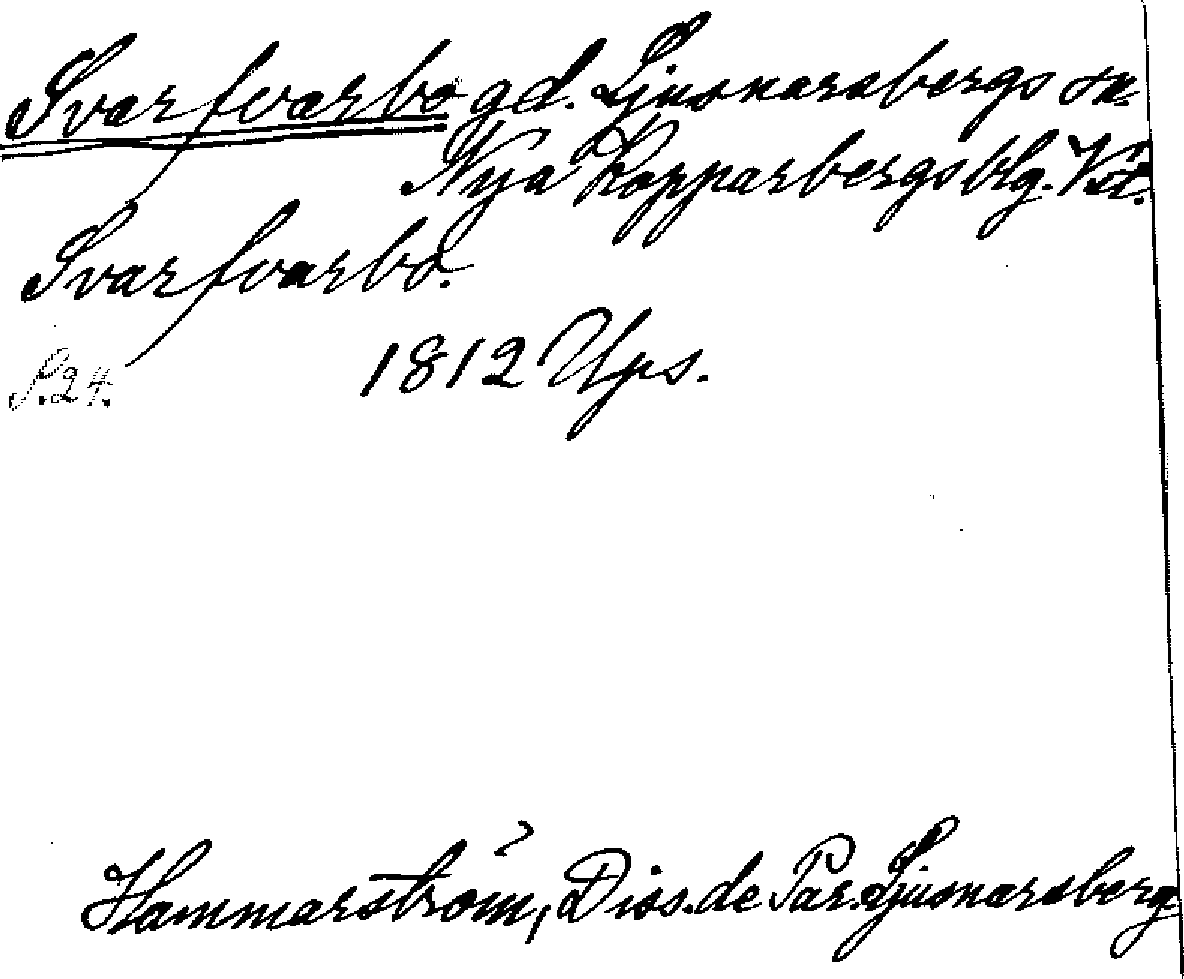 Svarfvarbo gd. Ljusnarsbergs sn.
Nya Kopparbergs blg. Vstm.
Svarfvarbo.
S.24. 1812 Ups.
Hammarström, Diss. de Par. Ljusnarsberg